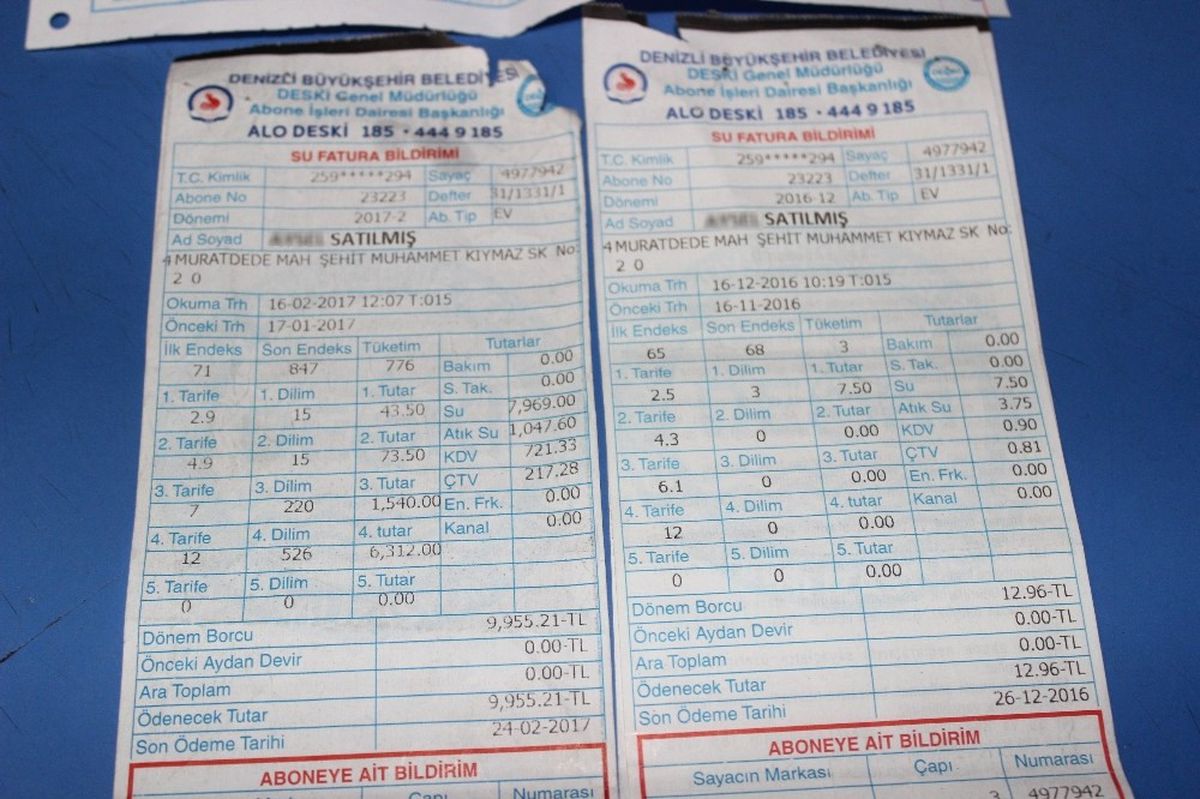 DENİZLİ BÜYÜKŞEHİR BELEDİYESİ
DESKİ Genel Müdürlüğü
Abone İşleri Dairesi Başkanlığı
ALO DESKİ 185 • 444 9 185
SU FATURA BİLDİRİMİ
T.C. Kimlik 259*****294 Sayaç 4977942
Abone No 23223 Defter 31/1331/1
Dönemi 2017-2 Ab. Tip EV
Ad Soyad SATILMIŞ
4 MURATDEDE MAH ŞEHİT MUHAMMET KIYMAZ SK No:
2 0
Okuma Trh 16-02-2017 12:07 T:015
Önceki Trh 17-01-2017
İlk Endeks Son Endeks Tüketim Tutarlar
71 847 776 Bakım 0.00
1. Tarife 1. Dilim 1. Tutar S. Tak. 0.00
2.9 15 43.50 Su 7,969.00
2. Tarife 2. Dilim 2. Tutar Atık Su 1,047.60
4.9 15 73.50 KDV 721.33
3. Tarife 3. Dilim 3. Tutar ÇTV 217.28
7 220 1,540.00 En. Frk. 0.00
4. Tarife 4. Dilim 4. tutar Kanal 0.00
12 526 6,312.00
5. Tarife 5. Dilim 5. Tutar
0 0 0.00
Dönem Borcu 9,955.21-TL
Önceki Aydan Devir 0.00-TL
Ara Toplam 0.00-TL
Ödenecek Tutar 9,955.21-TL
Son Ödeme Tarihi 24-02-2017
ABONEYE AİT BİLDİRİM
Sayacın Markası Çapı Numarası
DENİZLİ BÜYÜKŞEHİR BELEDİYESİ
DESKİ Genel Müdürlüğü
Abone İşleri Dairesi Başkanlığı
ALO DESKİ 185 • 444 9 185
SU FATURA BİLDİRİMİ
T.C. Kimlik 259*****294 Sayaç 4977942
Abone No 23223 Defter 31/1331/1
Dönemi 2016-12 Ab. Tip EV
Ad Soyad SATILMIŞ
4 MURATDEDE MAH ŞEHİT MUHAMMET KIYMAZ SK No:
2 0
Okuma Trh 16-12-2016 10:19 T:015
Önceki Trh 16-11-2016
İlk Endeks Son Endeks Tüketim Tutarlar
65 68 3 Bakım 0.00
1. Tarife 1. Dilim 1. Tutar S. Tak. 0.00
2.5 3 7.50 Su 7.50
2. Tarife 2. Dilim 2. Tutar Atık Su 3.75
4.3 0 0.00 KDV 0.90
3. Tarife 3. Dilim 3. Tutar ÇTV 0.81
6.1 0 0.00 En. Frk. 0.00
4. Tarife 4. Dilim 4. tutar Kanal 0.00
12 0 0.00
5. Tarife 5. Dilim 5. Tutar
0 0 0.00
Dönem Borcu 12.96-TL
Önceki Aydan Devir 0.00-TL
Ara Toplam 0.00-TL
Ödenecek Tutar 12.96-TL
Son Ödeme Tarihi 26-12-2016
ABONEYE AİT BİLDİRİM
Sayacın Markası Çapı Numarası
3 4977942